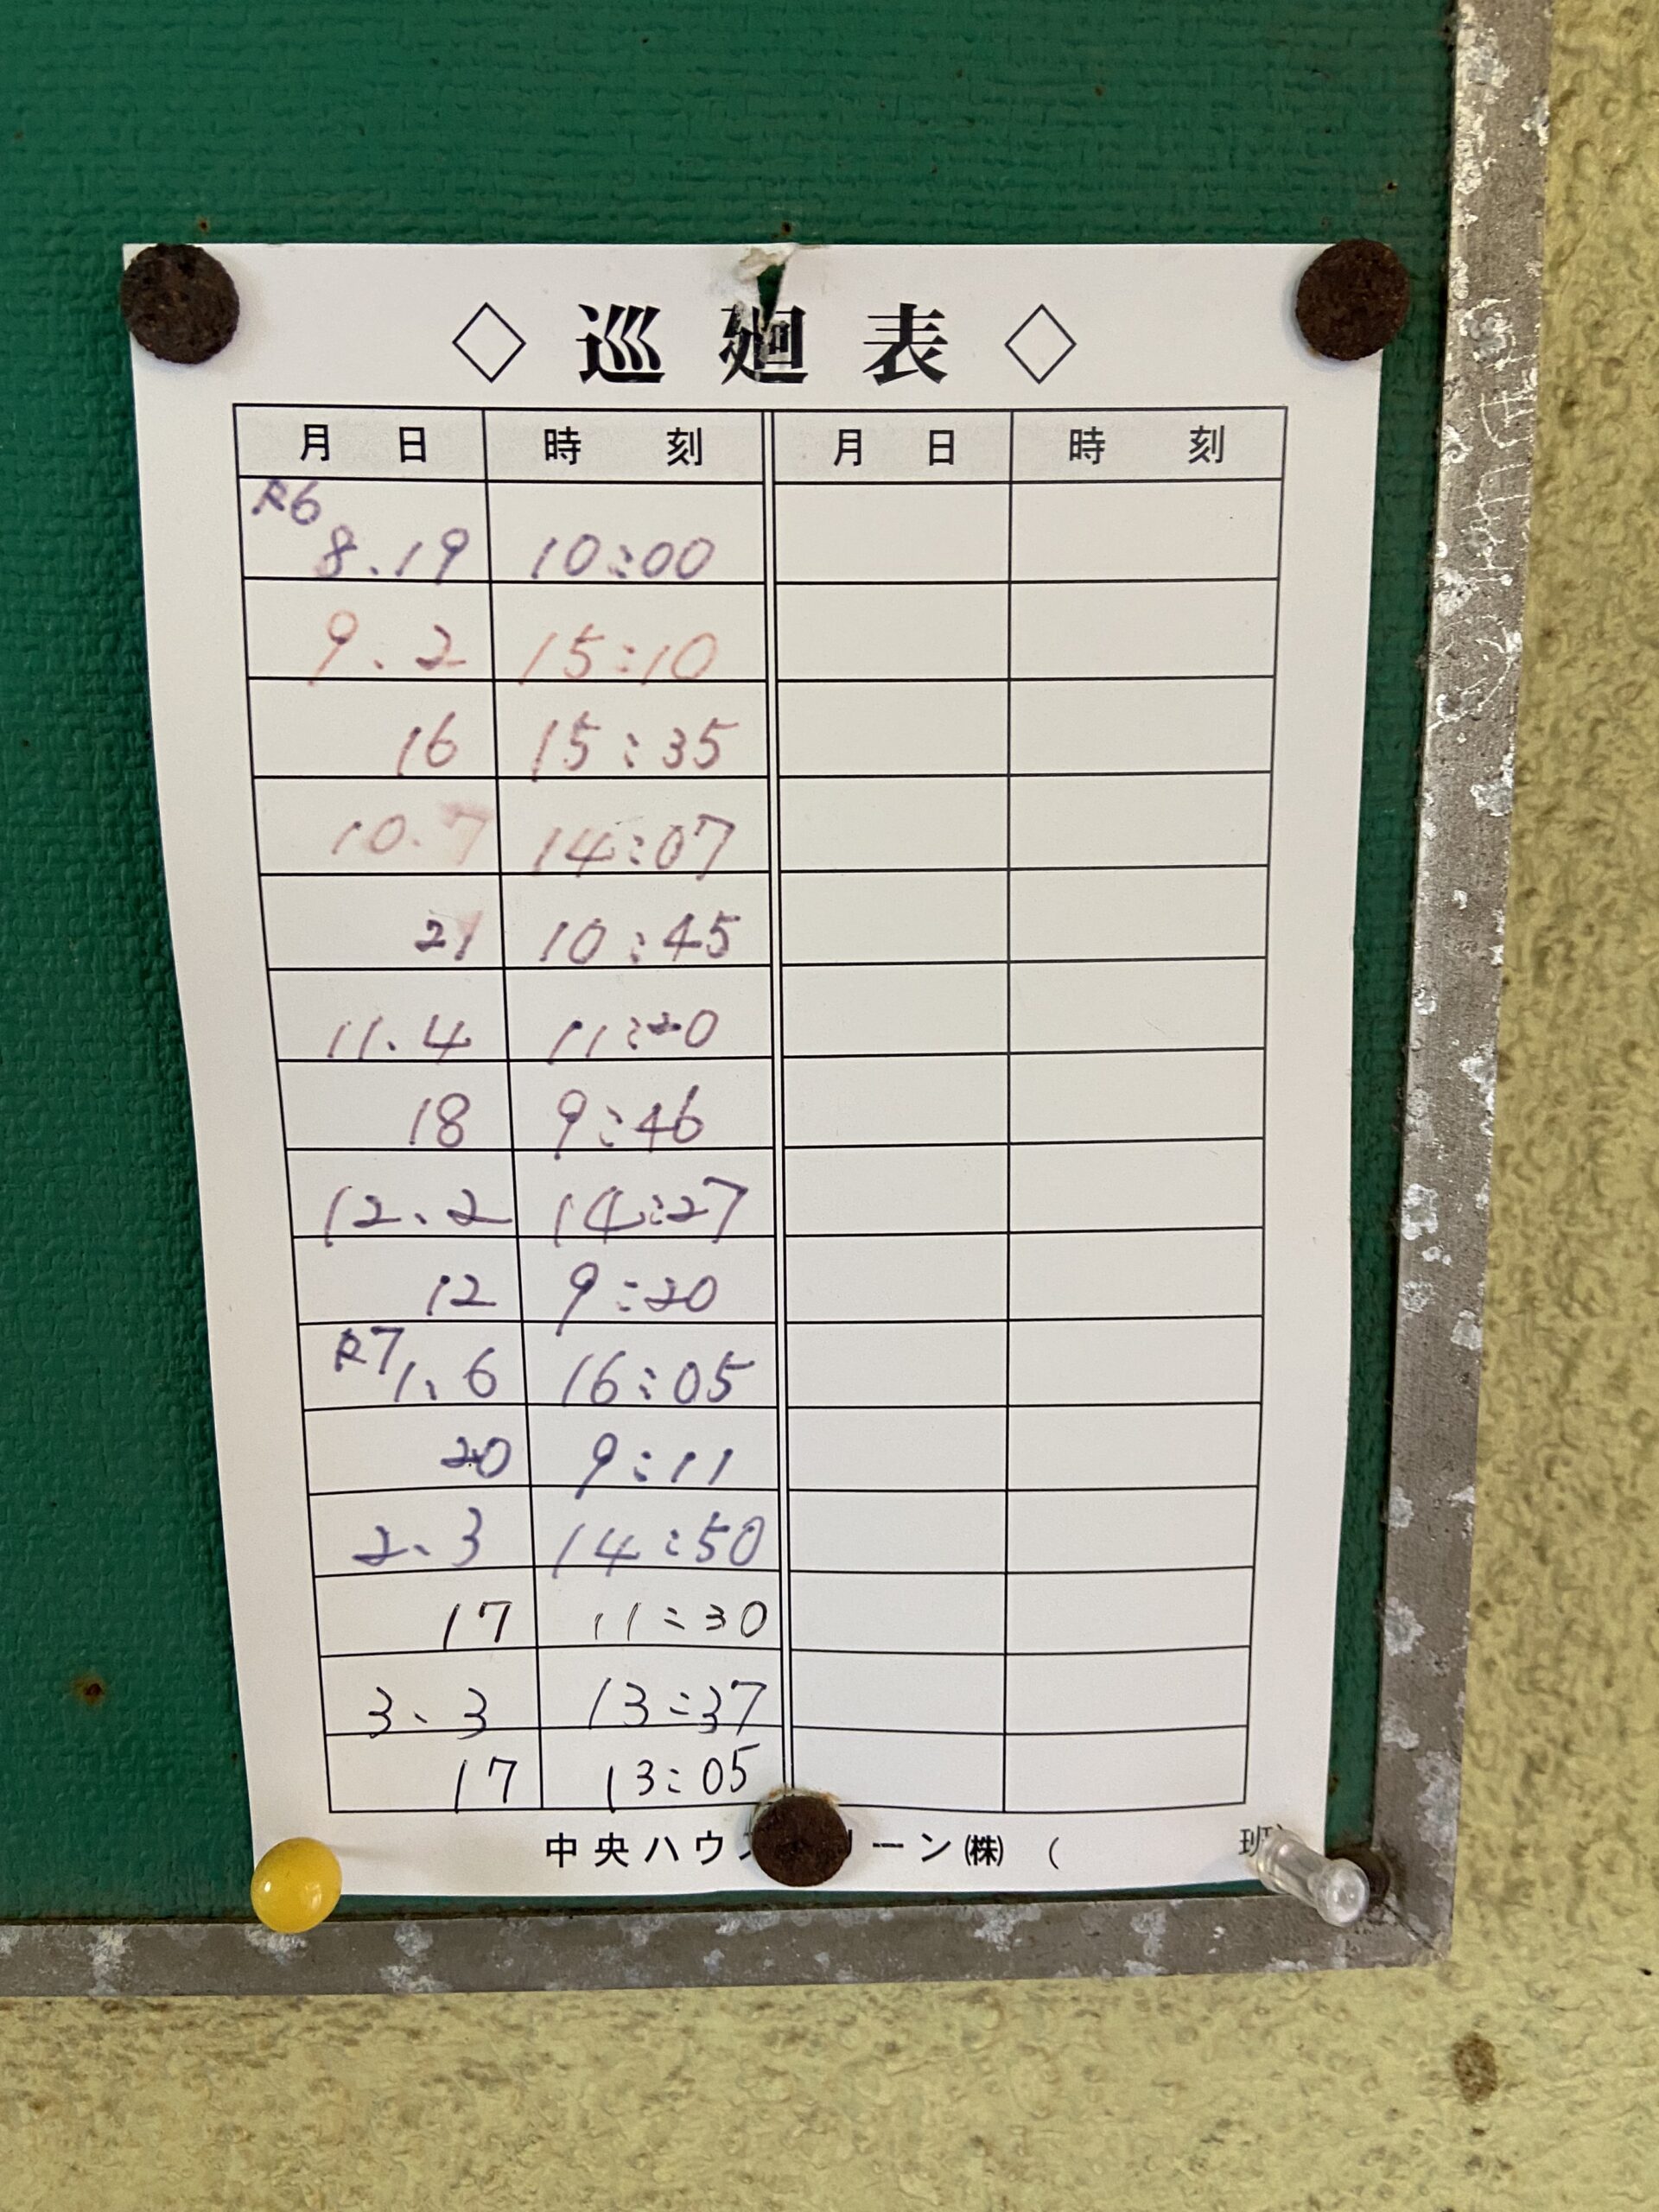 ◇ 巡廻表 ◇
月日 時刻 月日 時刻
R6
8.19 10:00
9.2 15:10
16 15:35
10.7 14:07
21 10:45
11.4 11:20
18 9:46
12.2 14:27
12 9:20
R7 1.6 16:05
20 9:11
2.3 14:50
17 11:30
3.3 13:37
17 13:05
中央ハウ ーン㈱ ( 班)